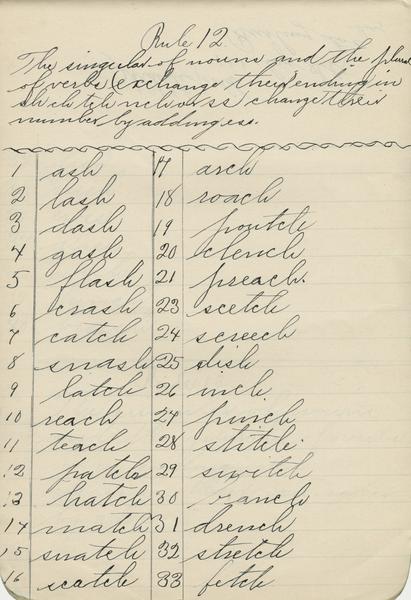 Rule 12.
The singular of nouns and the plural
of verbs (exchange they) ending in
sh ch tch nch or ss change their
number by adding es.
1 ash 17 arch
2 lash 18 roach
3 dash 19
4 gash 20 clench
5 flash 21 preach.
6 crash 23 scetch
7 catch 24 screech
8 25 dish
9 latch 26 inch
10 reach 27 pinch
11 teach 28 stitch.
12 patch 29 switch
13 hatch 30 ranch
14 match 31 drench
15 snatch 32 stretch
16 scatch 33 fetch